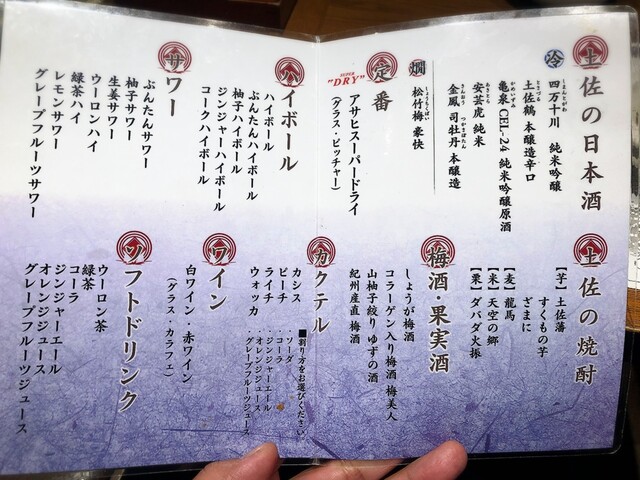 土佐の日本酒
冷
四万十川 純米吟醸
しまんとがわ
土佐鶴 本醸造辛口
とさづる
亀泉 CEL-24 純米吟醸原酒
かめいずみ
安芸虎 純米
あきとら
金鳳 司牡丹 本醸造
きんおう つかさぼたん
燗
松竹梅 豪快
しょうちくばい
定番
SUPER
"DRY"
アサヒスーパードライ
(グラス・ピッチャー)
ハイボール
ハイボール
ぶんたんハイボール
柚子ハイボール
ジンジャーハイボール
コークハイボール
サワー
ぶんたんサワー
柚子サワー
生姜サワー
ウーロンハイ
緑茶ハイ
レモンサワー
グレープフルーツサワー
土佐の焼酎
【芋】土佐藩
すくもの芋
ざまに
【麦】龍馬
【米】天空の郷
【栗】ダバダ火振
梅酒・果実酒
しょうが梅酒
コラーゲン入り梅酒 梅美人
山柚子絞り ゆずの酒
紀州産直 梅酒
カクテル
■割り方をお選びください
カシス
ピーチ
ライチ
ウォッカ
・ソーダ
・コーラ
・ジンジャーエール
・オレンジジュース
・グレープフルーツジュース
ワイン
白ワイン・赤ワイン
(グラス・カラフェ)
ソフトドリンク
ウーロン茶
緑茶
コーラ
ジンジャーエール
オレンジジュース
グレープフルーツジュース